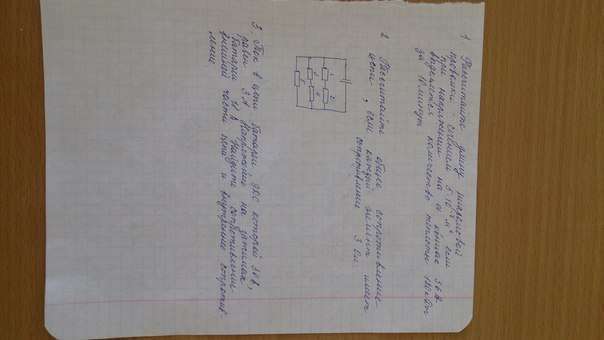 1 Рассчитайте длину никелевой
проволоки сечением 5·10 м², если
при напряжении на её концах 36 В
выделяется количество теплоты
за 10 минут
2 Рассчитайте общее сопротивление
цепи, если каждый элемент имеет
сопротивление 3 Ом
3. Ток в цепи батареи, ЭДС которой 30 В,
равен 3 А Напряжение на зажимах
батареи 18 В Найдите сопротивление
внешней части цепи и внутреннее сопротив-